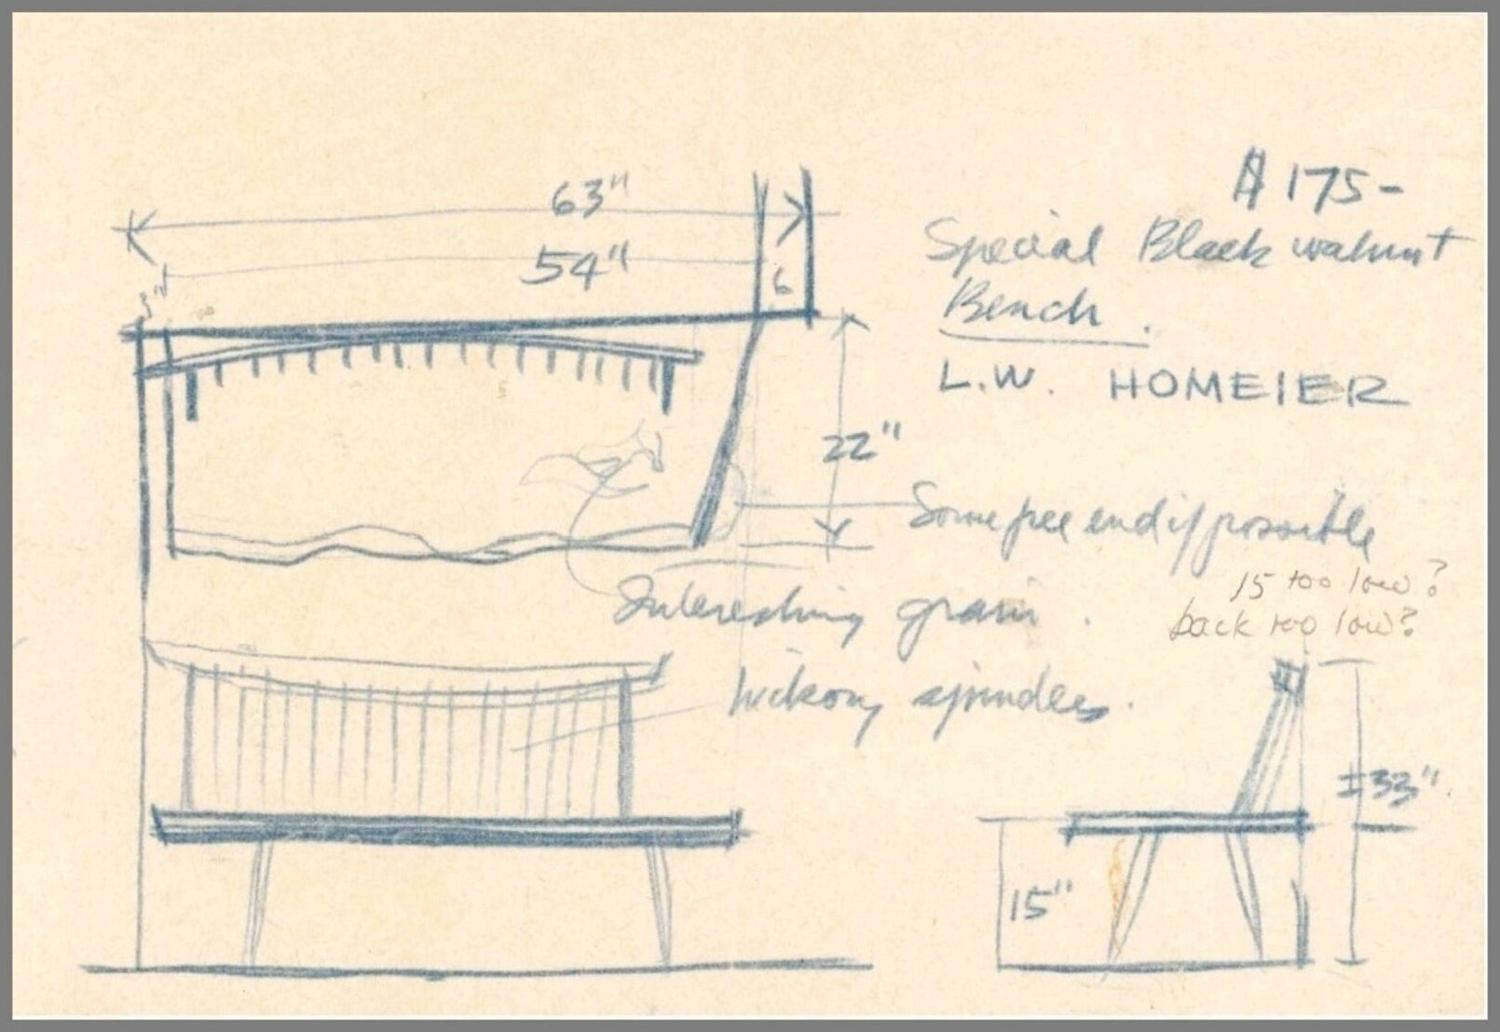 63"
54"
3"
6
22"
$175-
Special Black walnut
Bench.
L.W. HOMEIER
Some free end if possible
15 too low?
back too low?
Interesting grain.
hickory spindles.
33"
15"